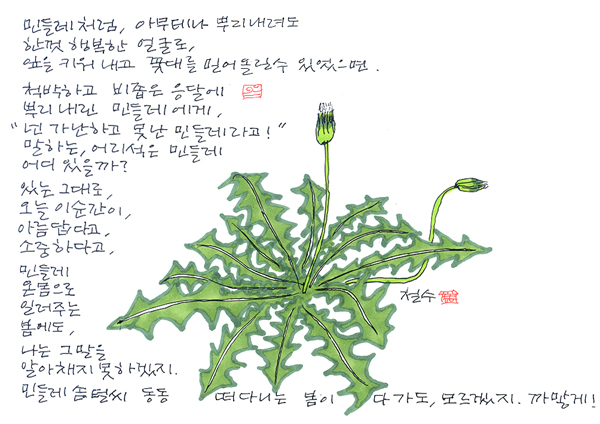 민들레처럼, 아무데나 뿌리내려도
한껏 행복한 얼굴로,
잎을 키워 내고 꽃대를 밀어올릴수 있었으면.
척박하고 비좁은 응달에
뿌리내린 민들레에게,
"넌 가난하고 못난 민들레라고!"
말하는, 어리석은 민들레
어디 있을까?
있는 그대로,
오늘 이순간이,
아름답다고,
소중하다고,
민들레
온몸으로
일러주는
봄에도,
나는 그말을
알아채지 못하겠지.
민들레 솜털씨 동동 떠다니는 봄이 다가도, 모르겠지. 까맣게!
철수